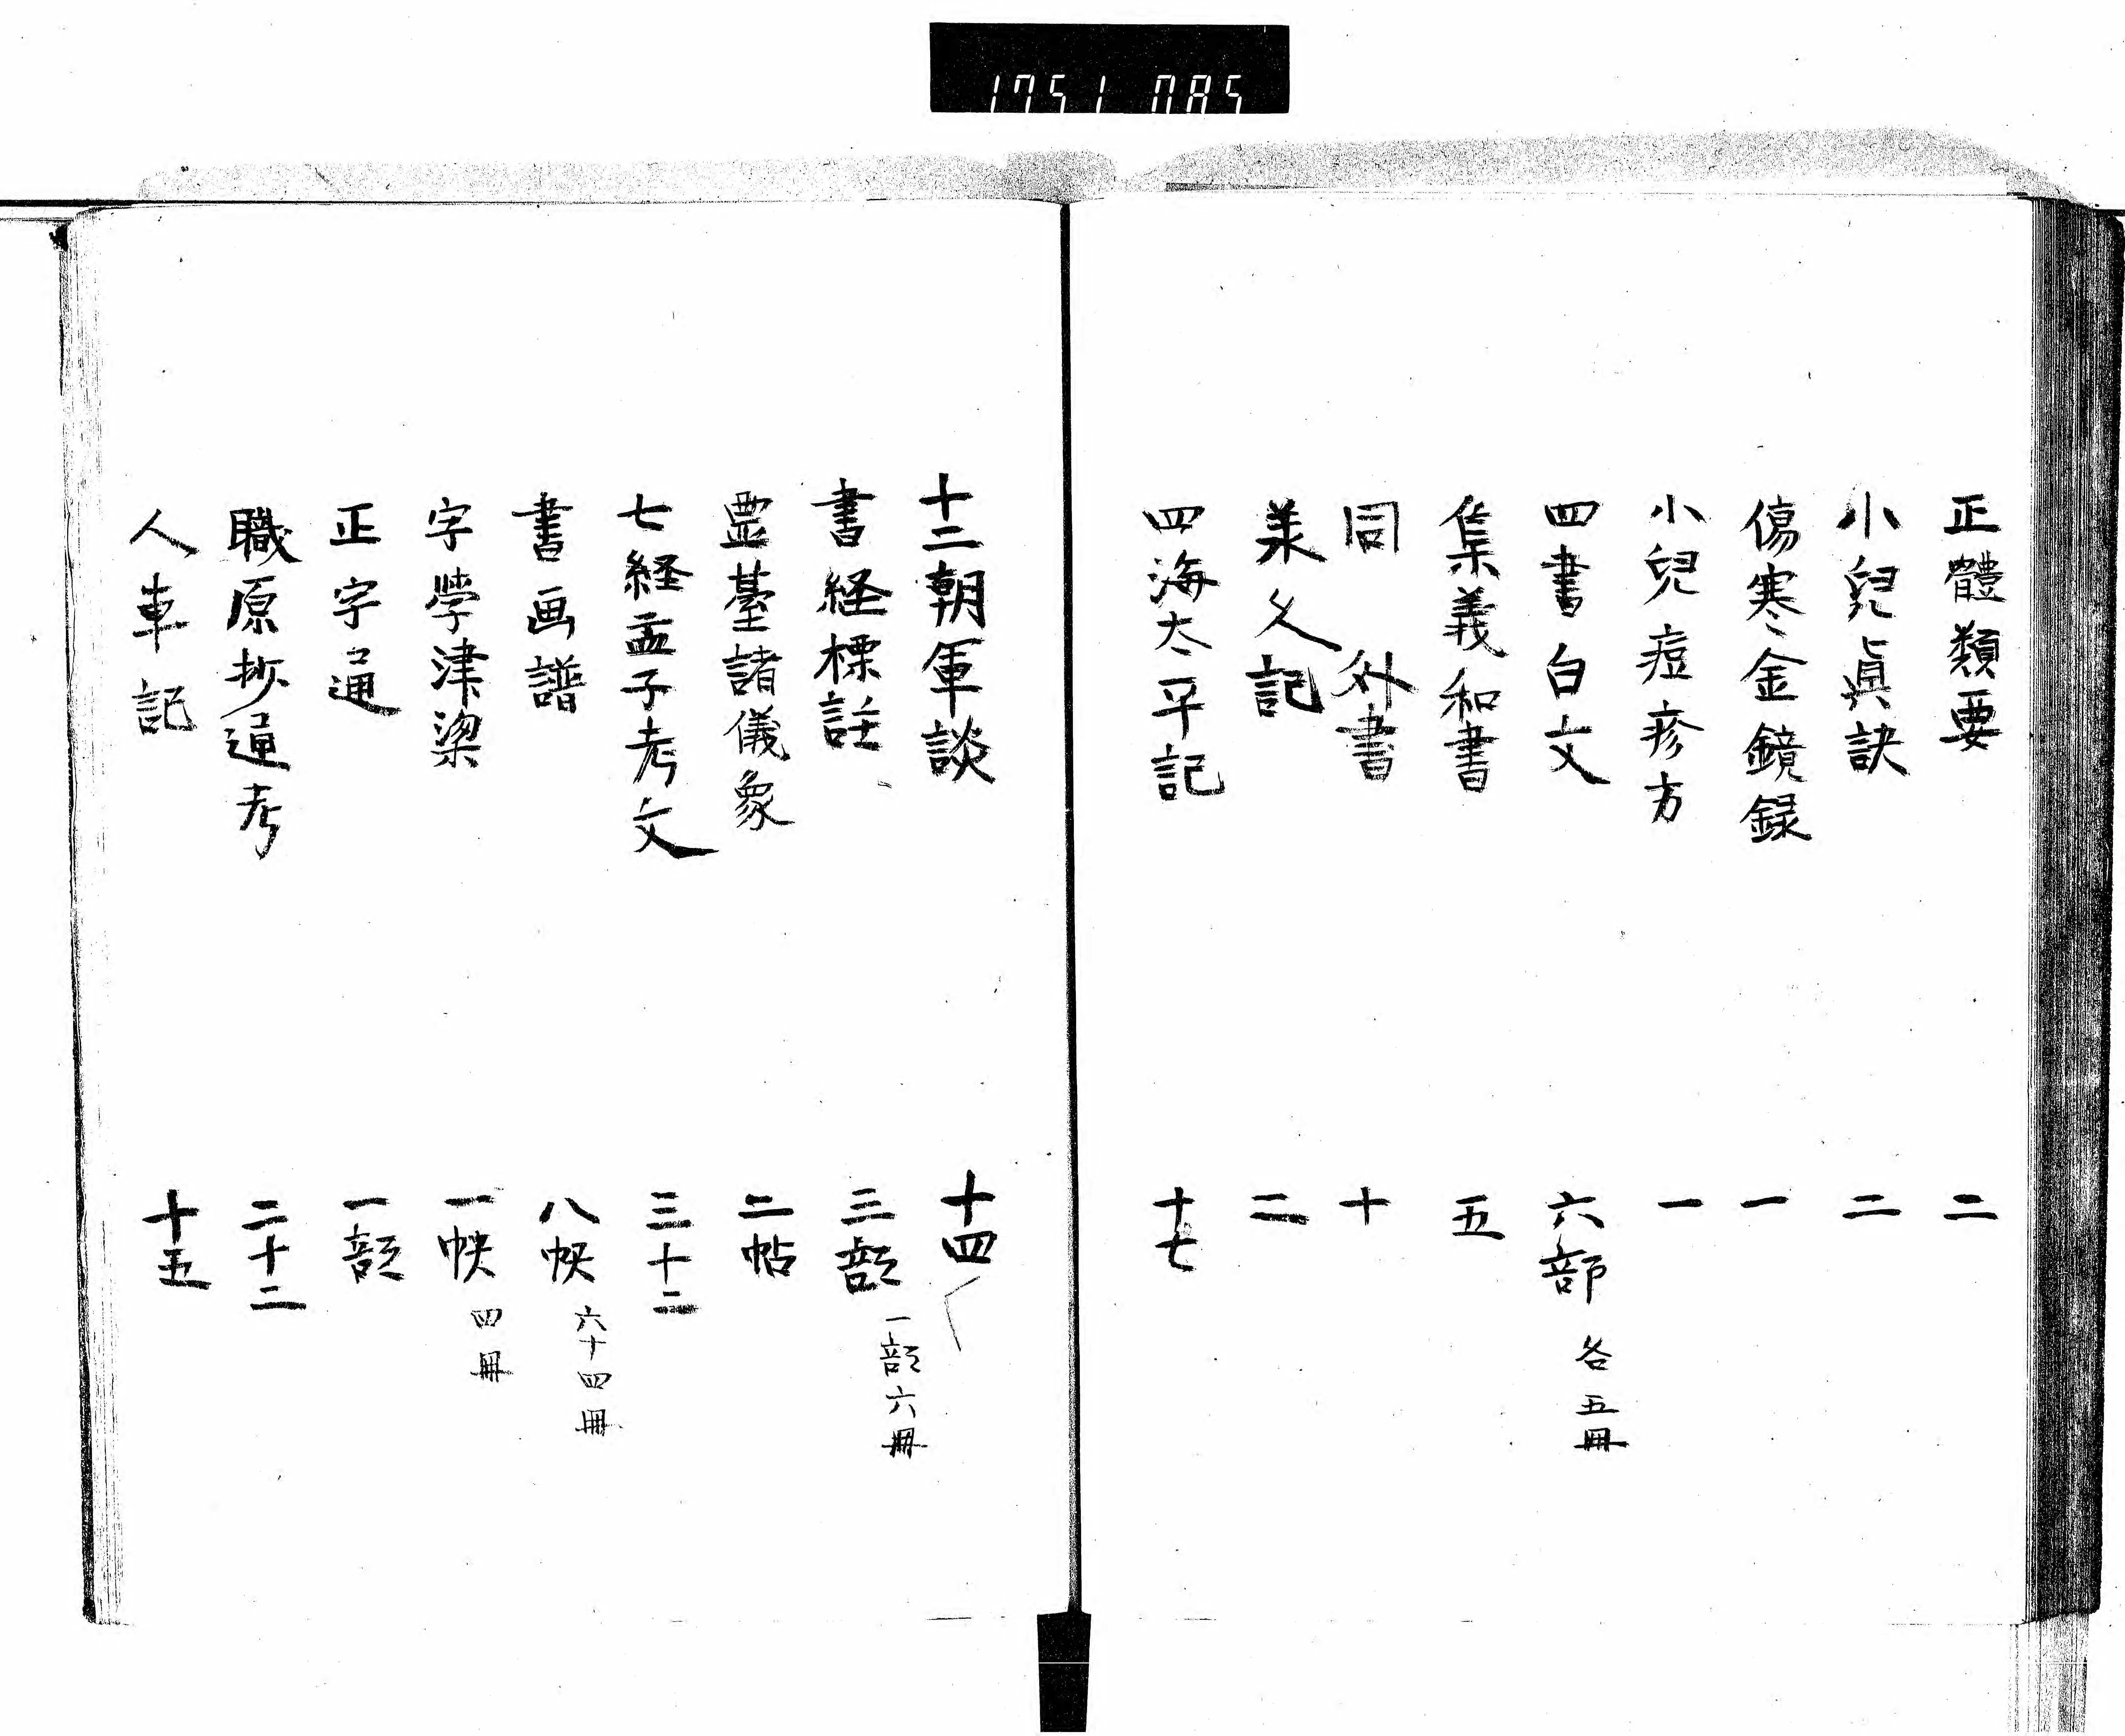 1751 085
正體類要 二
小兒眞訣 二
傷寒金鏡録 一
小兒痘疹方 一
四書白文 六部 各五冊
集義和書 五
同 外書 十
義人記 二
四海太平記 十七
十二朝軍談 十四
書経標註 三部 一部六冊
霊臺諸儀象 二帖
七経孟子考文 三十二
書画譜 八帙 六十四冊
字學津梁 一帙 四冊
正字通 一部
職原抄通考 二十二
人車記 十五